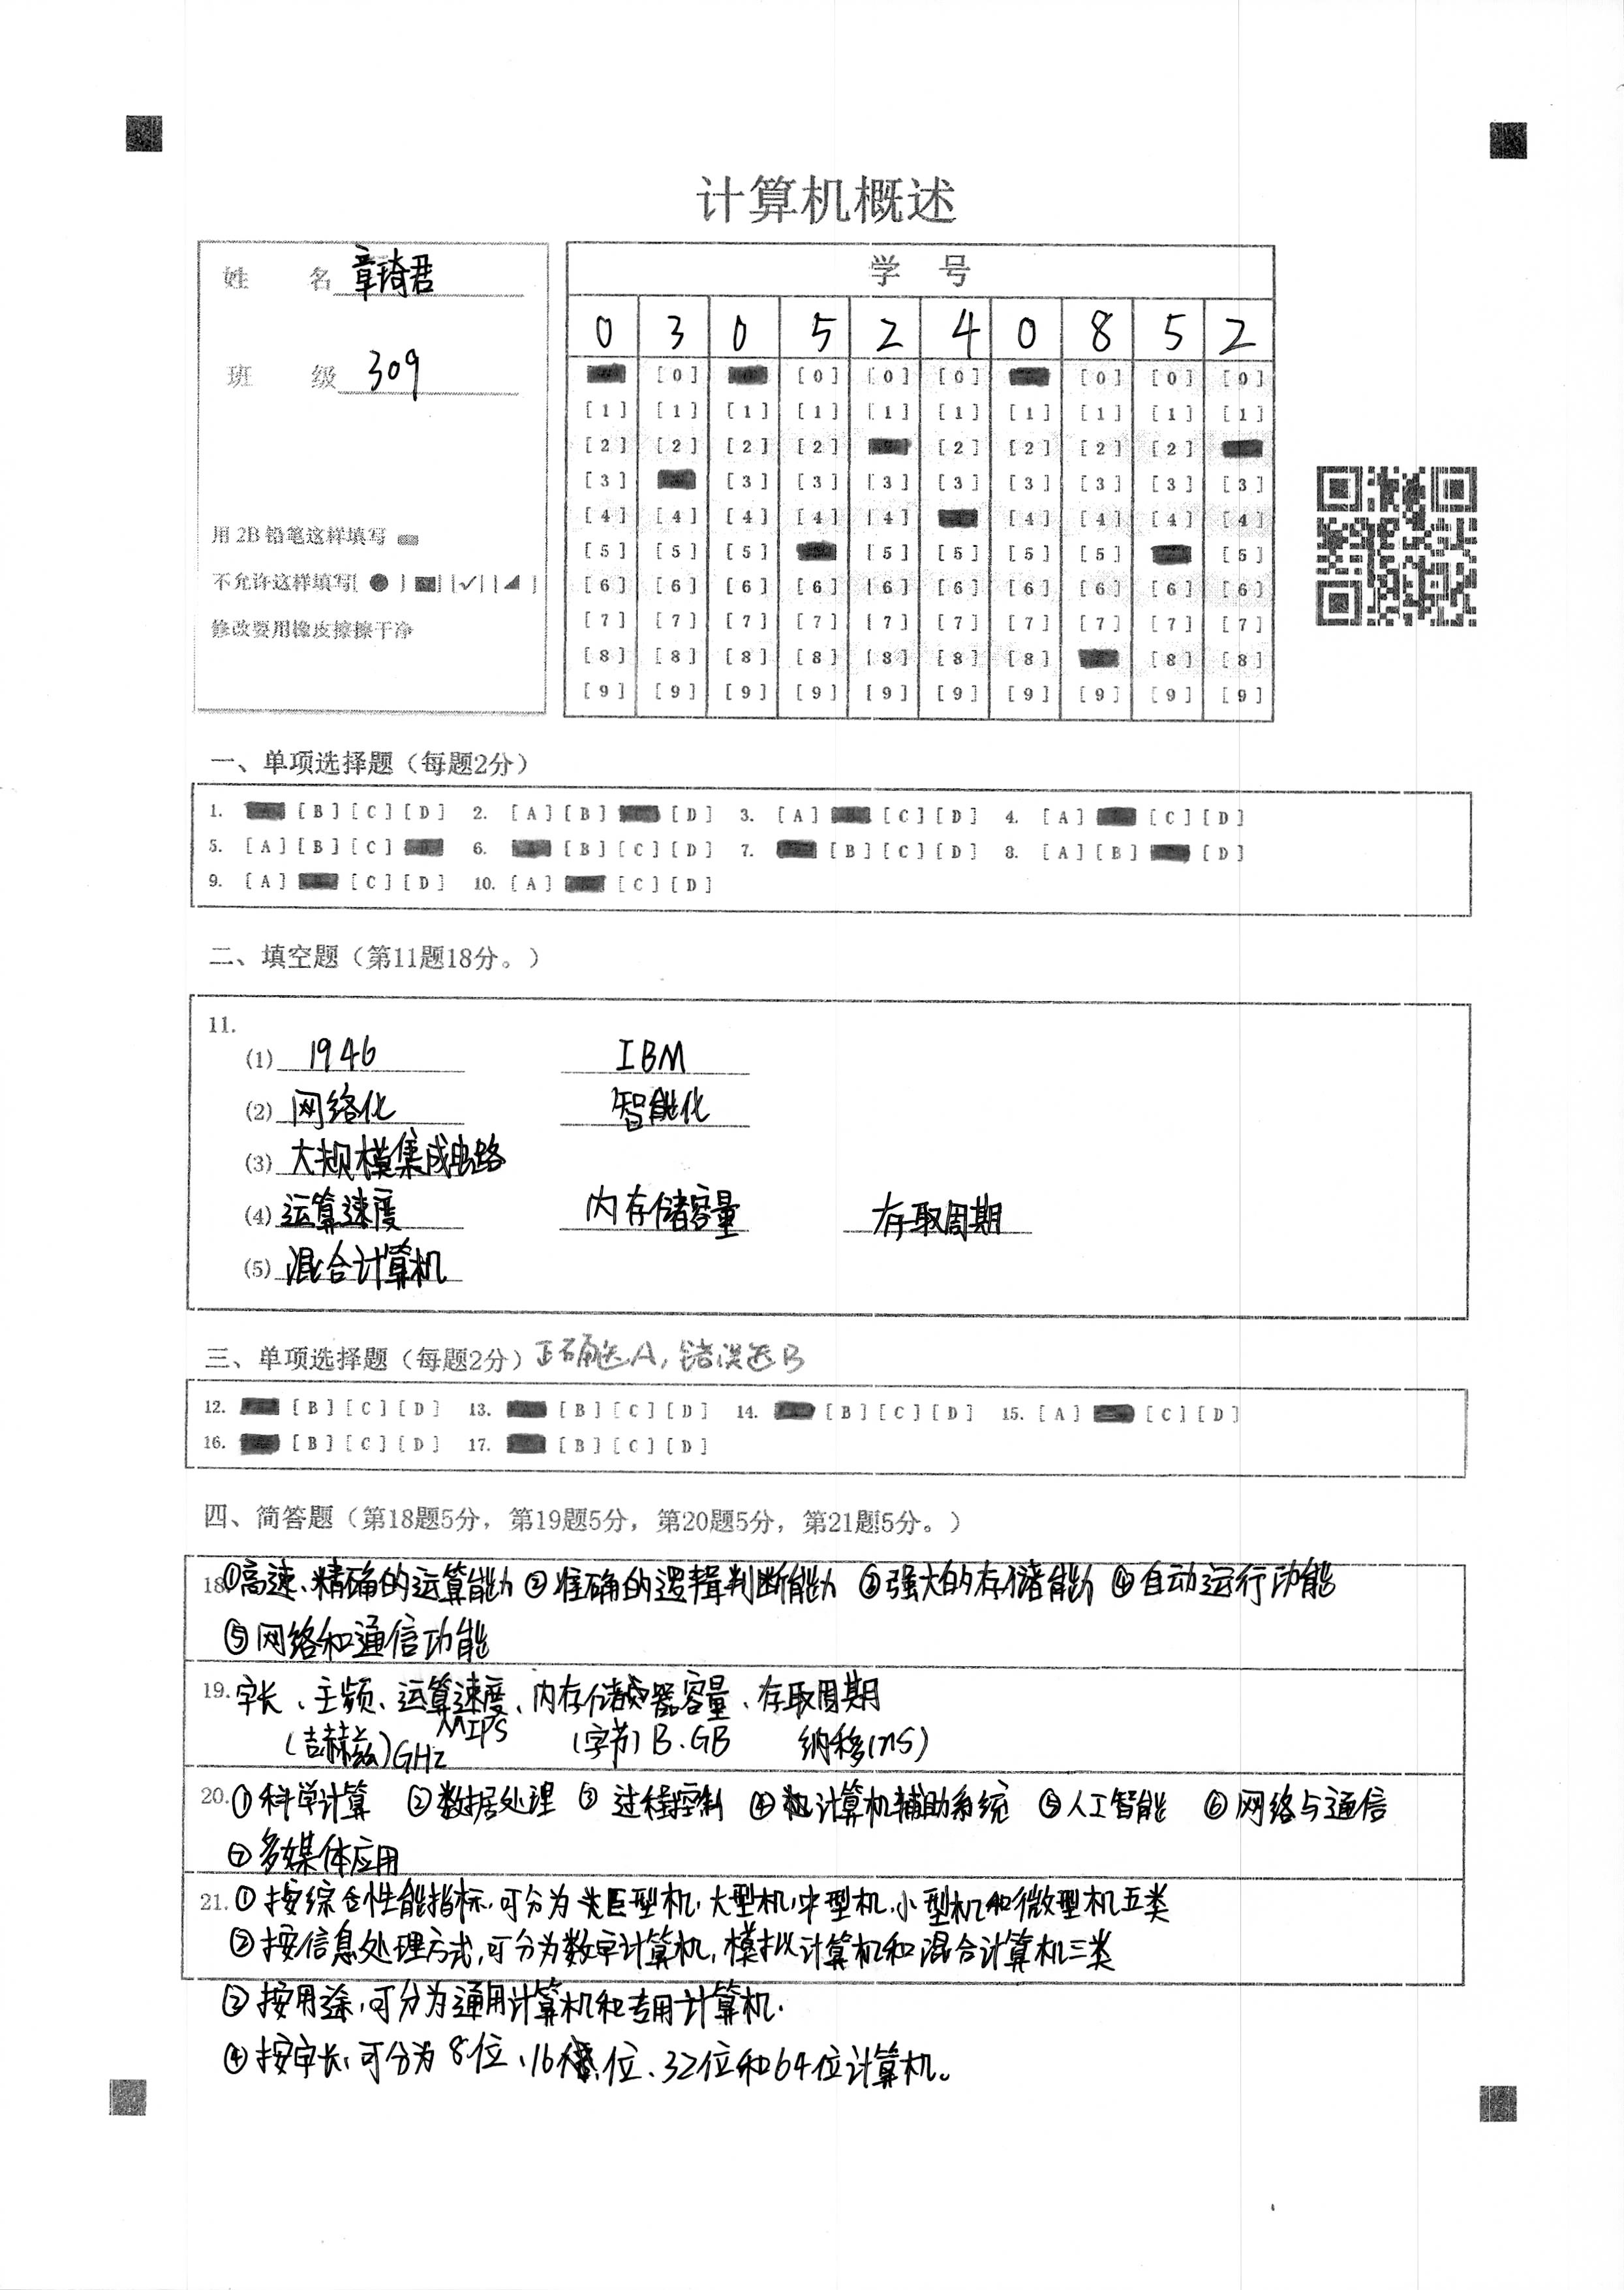 计算机概述
姓 名 章琦君
班 级 309
用 2B 铅笔这样填写
不允许这样填写[ ● ] [■] [✓] [◢ ]
修改要用橡皮擦擦干净
学 号
0 3 0 5 2 4 0 8 5 2
[0] [0] [0] [0] [0] [0] [0]
[1] [1] [1] [1] [1] [1] [1] [1] [1] [1]
[2] [2] [2] [2] [2] [2] [2] [2]
[3] [3] [3] [3] [3] [3] [3] [3] [3]
[4] [4] [4] [4] [4] [4] [4] [4] [4]
[5] [5] [5] [5] [5] [5] [5] [5]
[6] [6] [6] [6] [6] [6] [6] [6] [6] [6]
[7] [7] [7] [7] [7] [7] [7] [7] [7] [7]
[8] [8] [8] [8] [8] [8] [8] [8] [8]
[9] [9] [9] [9] [9] [9] [9] [9] [9] [9]
一、单项选择题（每题2分）
1. [B] [C] [D] 2. [A] [B] [D] 3. [A] [C] [D] 4. [A] [C] [D]
5. [A] [B] [C] 6. [B] [C] [D] 7. [B] [C] [D] 8. [A] [B] [D]
9. [A] [C] [D] 10. [A] [C] [D]
二、填空题（第11题18分。）
11.
(1) 1946 IBM
(2) 网络化 智能化
(3) 大规模集成电路
(4) 运算速度 内存储容量 存取周期
(5) 混合计算机
三、单项选择题（每题2分）正确选A，错误选B
12. [B] [C] [D] 13. [B] [C] [D] 14. [B] [C] [D] 15. [A] [C] [D]
16. [B] [C] [D] 17. [B] [C] [D]
四、简答题（第18题5分，第19题5分，第20题5分，第21题5分。）
18.①高速、精确的运算能力 ②准确的逻辑判断能力 ③强大的存储能力 ④自动运行功能
⑤网络和通信功能
19.字长、主频、运算速度、内存储器容量、存取周期
(吉赫兹)GHz MIPS (字节)B.GB 纳秒(ns)
20.①科学计算 ②数据处理 ③过程控制 ④计算机辅助系统 ⑤人工智能 ⑥网络与通信
⑦多媒体应用
21.①按综合性能指标,可分为巨型机,大型机,中型机,小型机和微型机五类
②按信息处理方式,可分为数字计算机,模拟计算机和混合计算机三类
③按用途,可分为通用计算机和专用计算机.
④按字长,可分为8位、16位、32位和64位计算机。